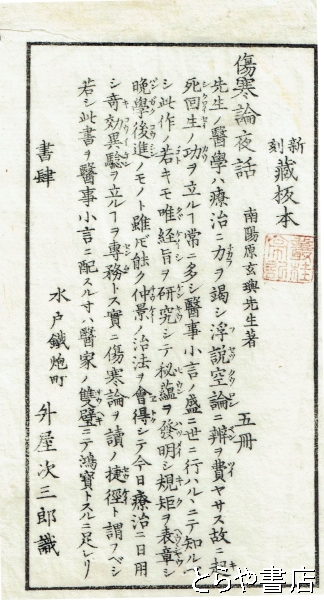 新刻藏板本
傷寒論夜話 南陽原玄璵先生著 五冊
先生ノ醫學ハ療治ニ力ヲ竭シ浮説空論ニ辨ヲ費ヤサス故ニ起
死回生ノ功ヲ立ルヿ常ニ多シ醫事小言ノ盛ニ世ニ行ハルヽニテ知ルヘ
シ此作ノ若キモ唯經旨ヲ研究シテ秘蘊ヲ發明シ規矩ヲ表章シ
晩學後進ノモノト雖𪜈能ク仲景ノ治法ヲ會得シテ今日療治ニ日用
シ奇効異驗ヲ立ルヿヲ專務トス實ニ傷寒論ヲ讀ノ捷徑ト謂フベシ
若シ此書ヲ醫事小言ニ配スル寸ハ醫家ノ雙璧ニテ鴻寶トスルニ足レリ
書肆 水戸鐵炮町 外屋次三郎識
とらや書店